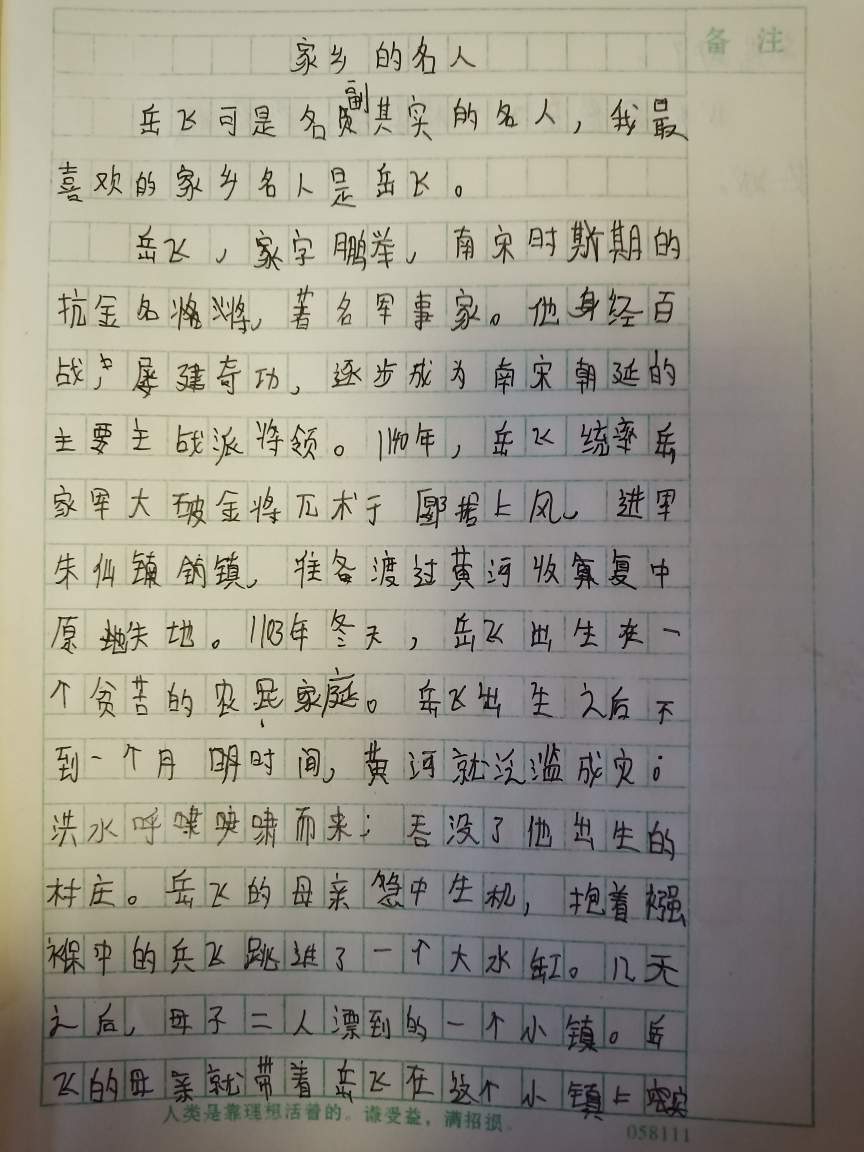 备注
家乡的名人
岳飞可是名副其实的名人，我最
喜欢的家乡名人是岳飞。
岳飞，字鹏举，南宋时期的
抗金名将，著名军事家。他身经百
战，屡建奇功，逐步成为南宋朝延的
主要主战派将领。1140年，岳飞统率岳
家军大破金将兀术于郾据上风，进军
朱仙镇，准备渡过黄河收复中
原失地。1103年冬天，岳飞出生在一
个贫苦的农民家庭。岳飞出生之后不
到一个月时间，黄河就泛滥成灾；
洪水呼啸而来；吞没了他出生的
村庄。岳飞的母亲急中生机，抱着襁
褓中的岳飞跳进了一个大水缸。几天
之后，母子二人漂到的一个小镇。岳
飞的母亲就带着岳飞在这个小镇上
人类是靠理想活着的。谦受益，满招损。
058111